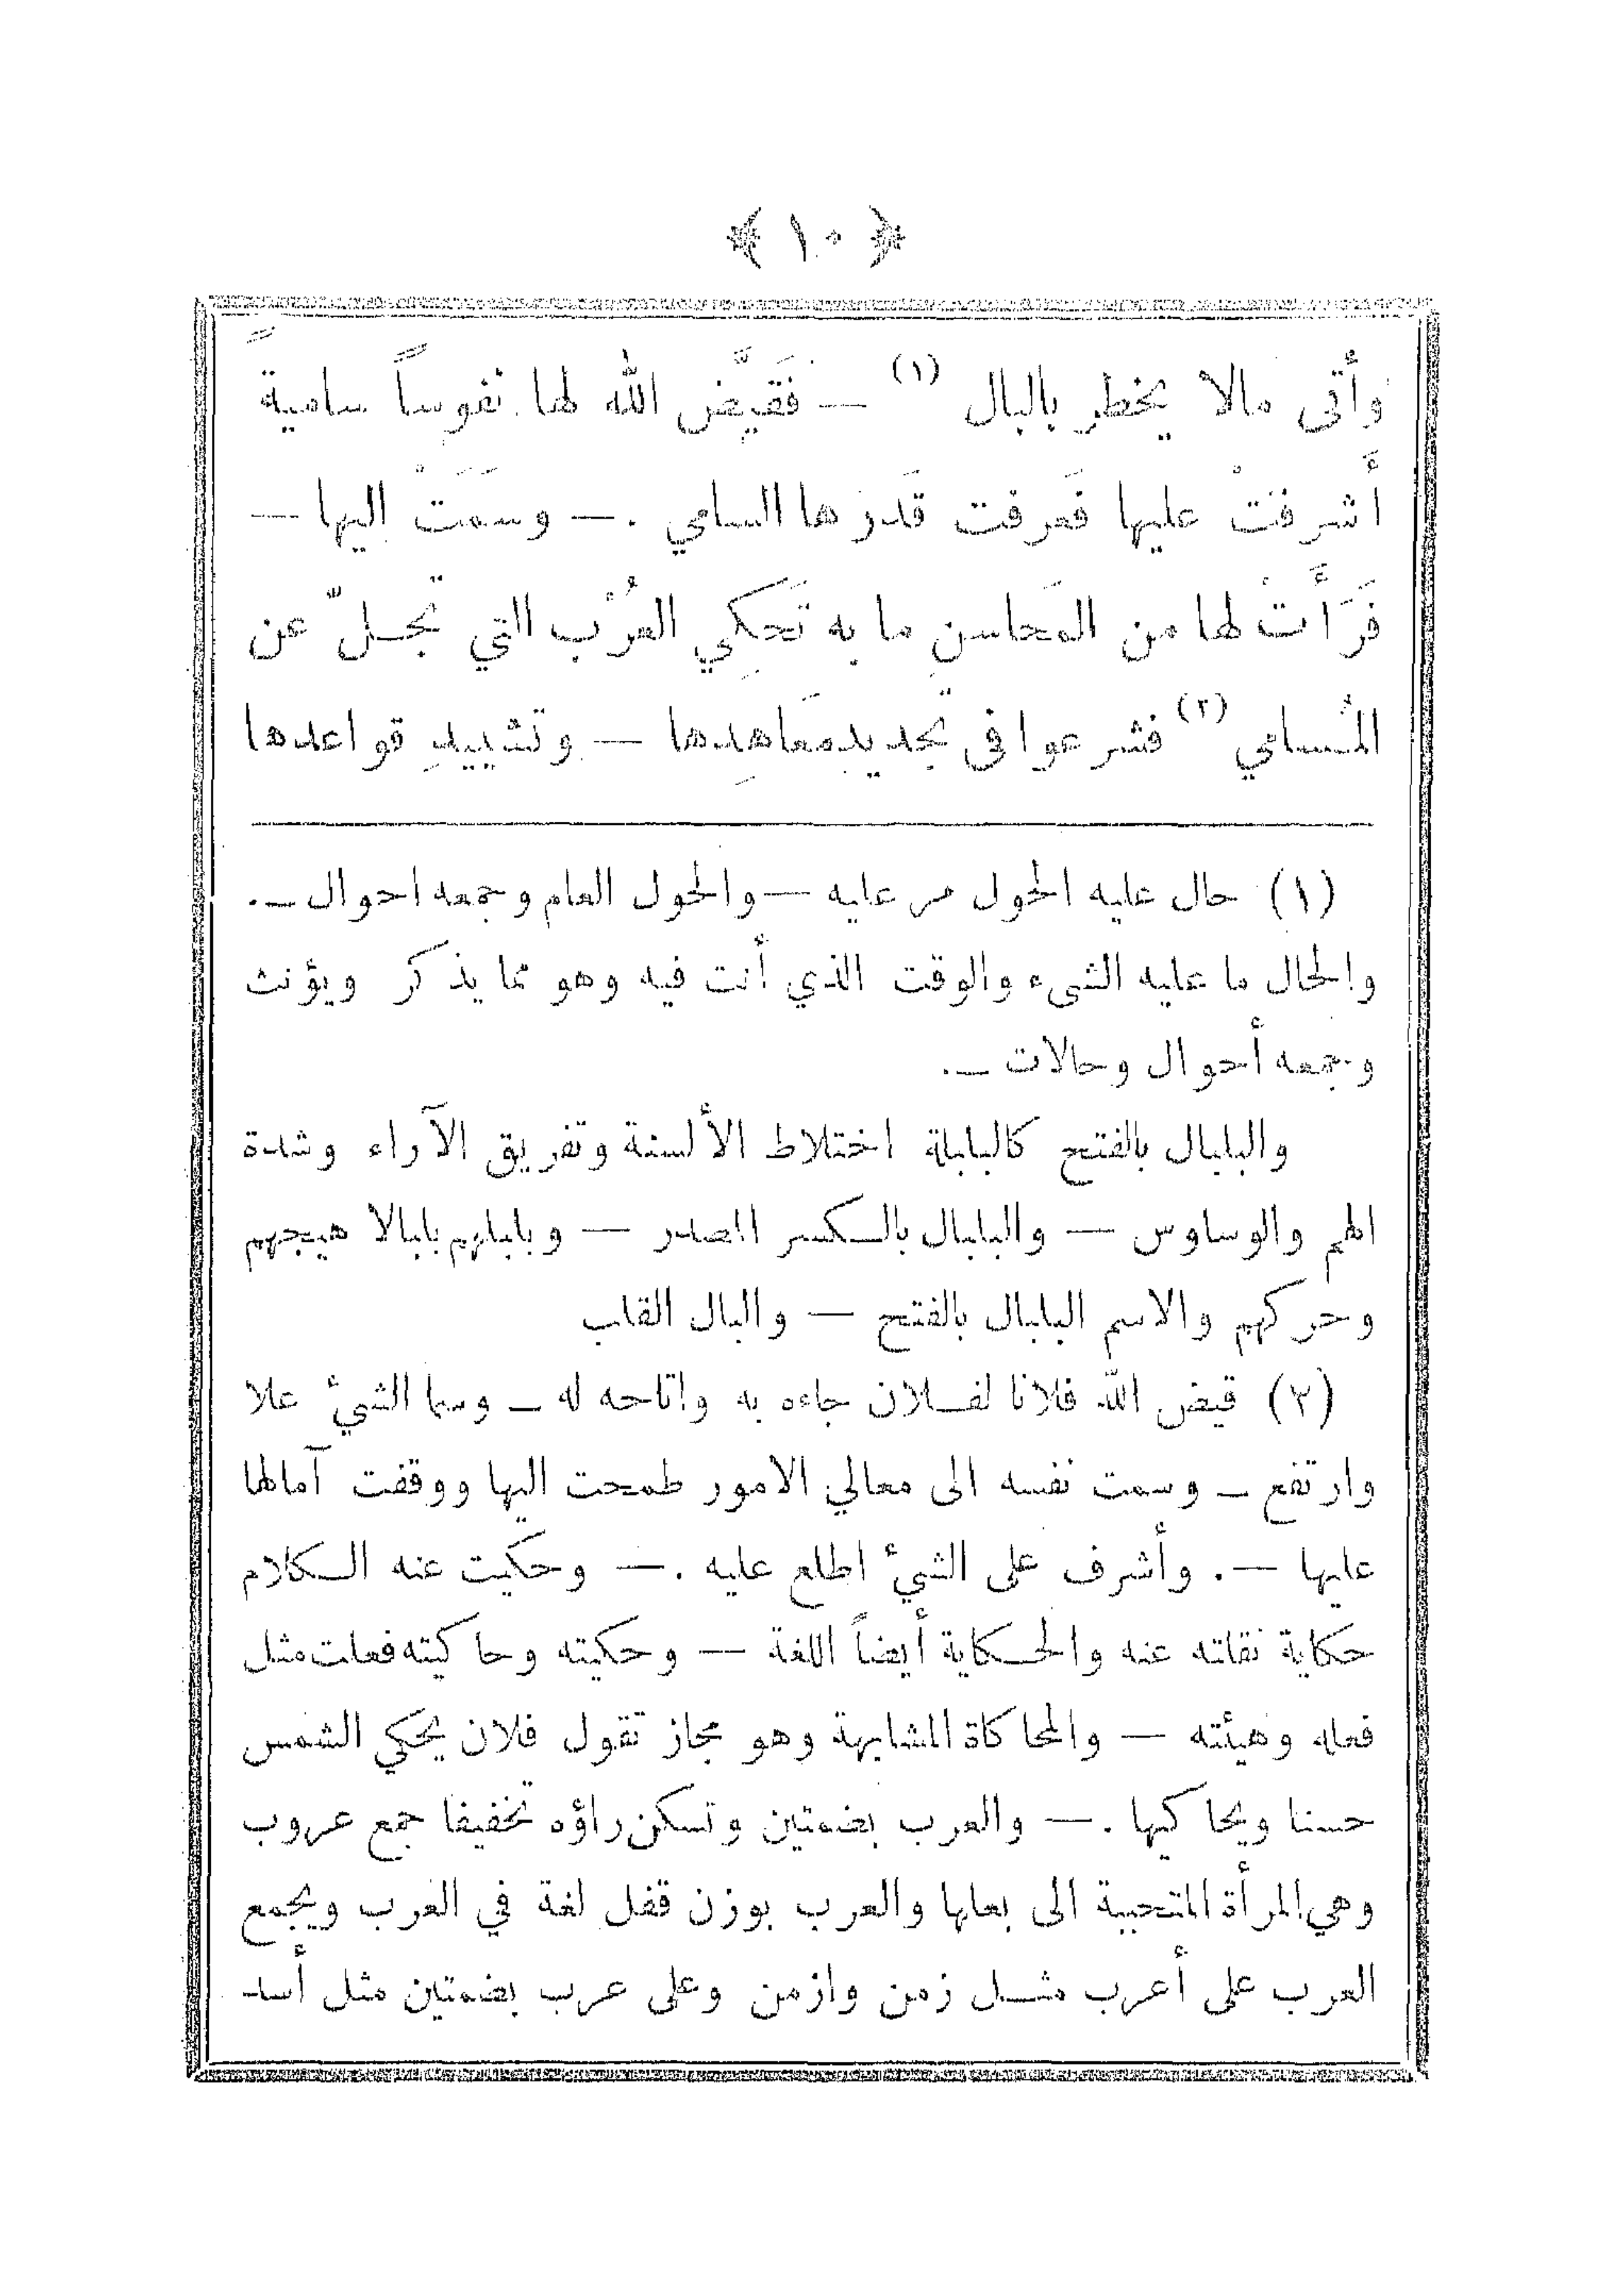 ﴿ ١٠ ﴾
وأتى مالا يخطر بالبال (١) — فَقَيَّض الله لها نفوساً ساميةً
أَشرفتْ عليها فَعرفت قَدرَها السامي . — وسَمَتْ اليها —
فَرَأَتْ لها من المَحاسنِ ما به تَحكِي العُرْب التي تجـلّ عن
المُسامي (٢) فشرعوا فى تجديد مَعاهِدِها — وتشييدِ قواعدها
(١) حال عليه الحول مر عليه — والحول العام وجمعه احوال — .
والحال ما عليه الشىء والوقت الذي أنت فيه وهو مما يذكر ويؤنث
وجمعه أحوال وحالات — .
والبلبال بالفتح كالبلبلة اختلاط الألسنة وتفريق الآراء وشدة
الهم والوساوس — والبلبال بالكسر المصدر — وبلبلهم بلبالا هيجهم
وحركهم والاسم البلبال بالفتح — والبال القلب
(٢) قيض الله فلانا لفـلان جاءه به واتاحه له — وسما الشيء علا
وارتفع — وسمت نفسه الى معالي الامور طمحت اليها ووقفت آمالها
عليها — . وأشرف على الشيء اطلع عليه . — وحكيت عنه الكلام
حكاية نقلته عنه والحكاية أيضاً اللغة — وحكيته وحاكيته فعلت مثل
فعله وهيئته — والمحاكاة المشابهة وهو مجاز تقول فلان يحكي الشمس
حسنا ويحاكيها . — والعرب بضمتين وتسكن راؤه تخفيفا جمع عروب
وهي المرأة المتحببة الى بعلها والعرب بوزن قفل لغة في العرب ويجمع
العرب على أعرب مثـل زمن وازمن وعلى عرب بضمتين مثل أسد